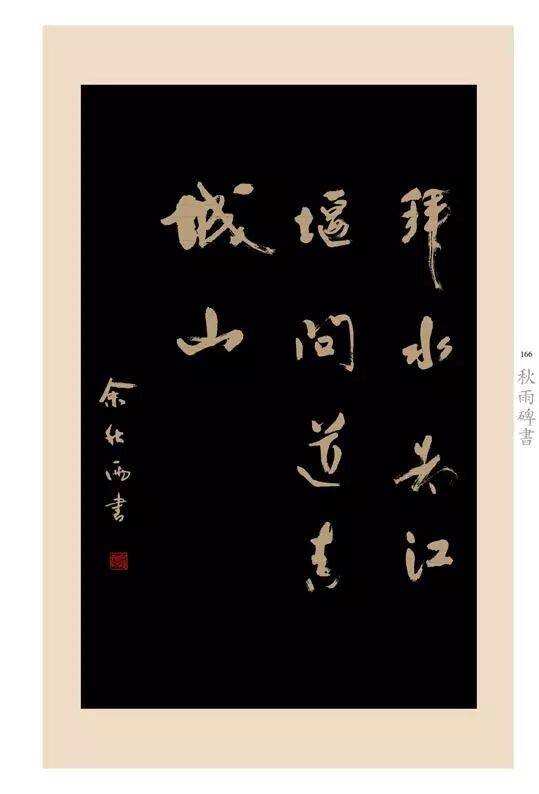 拜水都江
堰问道青
城山
余秋雨書
166
秋雨碑書